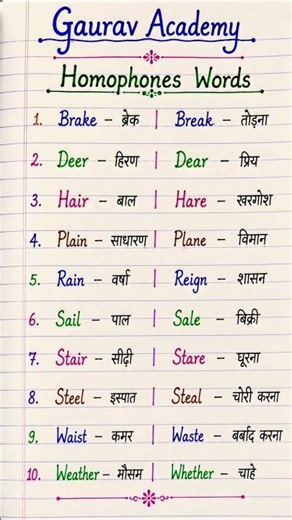 Gaurav Academy
Homophones Words
1. Brake – ब्रेक | Break – तोड़ना
2. Deer – हिरण | Dear – प्रिय
3. Hair – बाल | Hare – खरगोश
4. Plain – साधारण | Plane – विमान
5. Rain – वर्षा | Reign – शासन
6. Sail – पाल | Sale – बिक्री
7. Stair – सीढ़ी | Stare – घूरना
8. Steel – इस्पात | Steal – चोरी करना
9. Waist – कमर | Waste – बर्बाद करना
10. Weather – मौसम | Whether – चाहे